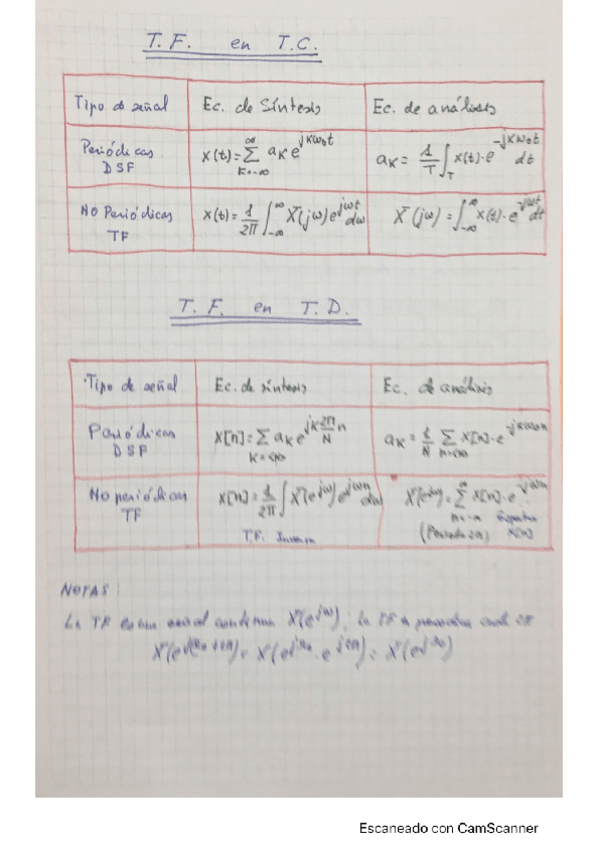 T.F. en T.C.
Tipo de señal Ec. de Síntesis Ec. de análisis
Periódicas DSF x(t)=∑_{k=-∞}^{∞} a_k e^{jkω₀t} a_k = 1/T ∫_T x(t)·e^{-jkω₀t} dt
No Periódicas TF x(t)= 1/2π ∫_{-∞}^{∞} X(jω) e^{jωt} dω X(jω) = ∫_{-∞}^{∞} x(t)·e^{-jωt} dt
T.F. en T.D.
Tipo de señal Ec. de síntesis Ec. de análisis
Periódicas DSF x[n]=∑_{k=<N>} a_k e^{jk 2π/N n} a_k = 1/N ∑_{n=<N>} x[n]·e^{-jkω₀n}
No periódicas TF x[n]= 1/2π ∫ X(e^{jω}) e^{jωn} dω X(e^{jω})= ∑_{n=-∞}^{∞} x[n]·e^{-jωn}
T.F. Inversa (Periodo 2π) Espectro x[n]
NOTAS:
La TF es una señal continua X(e^{jω}), la TF es periódica cada 2π
X(e^{j(ω₀+2π)}) = X(e^{jω₀} · e^{j2π}) = X(e^{jω₀})
Escaneado con CamScanner